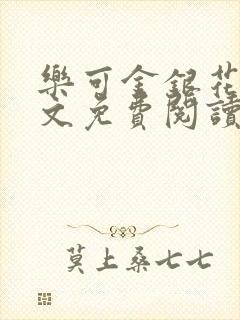 樂可金銀花
文免費閱讀
莫上桑七七